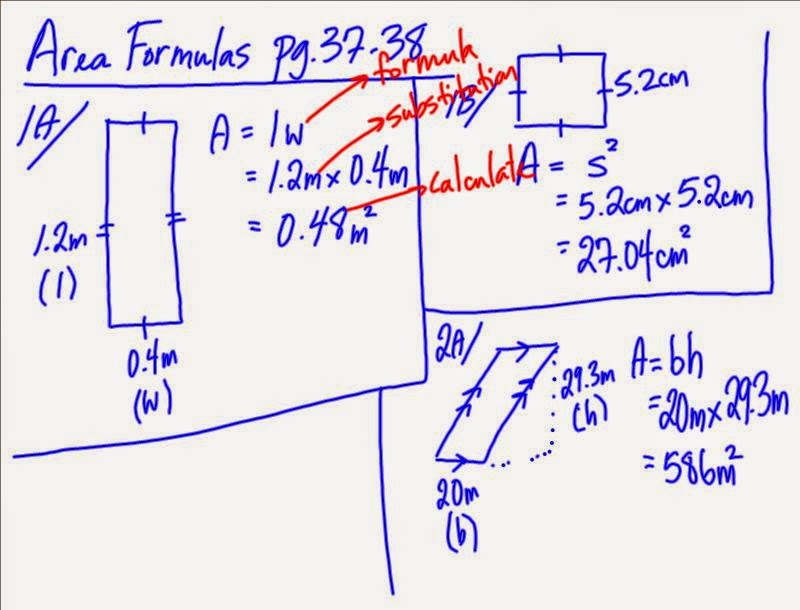 Area Formulas pg.37-38
1A/
1.2m
(l)
0.4m
(w)
A = lw
= 1.2m x 0.4m
= 0.48m²
formula
substitution
calculate
1B/
5.2cm
A = s²
= 5.2cm x 5.2cm
= 27.04cm²
2A/
29.3m
(h)
20m
(b)
A = bh
= 20m x 29.3m
= 586m²